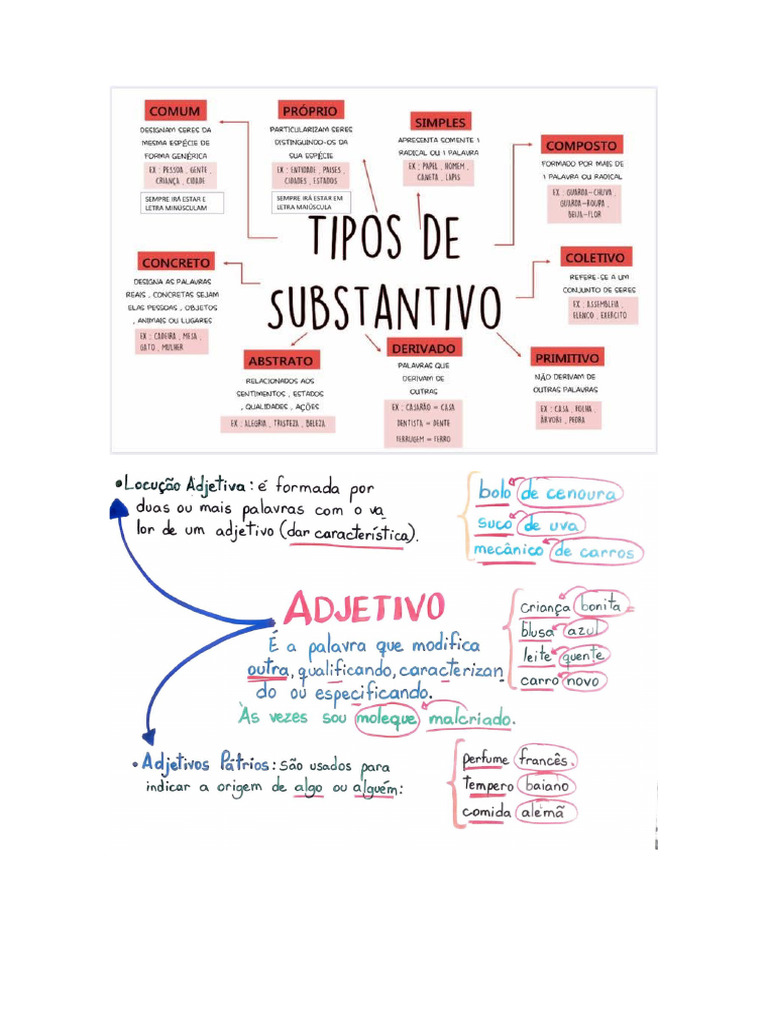 COMUM
DESIGNAM SERES DA
MESMA ESPÉCIE DE
FORMA GENÉRICA
EX : PESSOA , GENTE ,
CRIANÇA , CIDADE
SEMPRE IRÁ ESTAR E
LETRA MINÚSCULAM
PRÓPRIO
PARTICULARIZAM SERES
DISTINGUINDO-OS DA
SUA ESPÉCIE
EX : ENTIDADE , PAISES ,
CIDADES , ESTADOS
SEMPRE IRÁ ESTAR EM
LETRA MAIÚSCULA
SIMPLES
APRESENTA SOMENTE 1
RADICAL OU 1 PALAVRA
EX : PAPEL , HOMEM ,
CANETA , LAPIS
COMPOSTO
FORMADO POR MAIS DE
1 PALAVRA OU RADICAL
EX : GUARDA-CHUVA ,
GUARDA-ROUPA ,
BEIJA-FLOR
TIPOS DE
SUBSTANTIVO
CONCRETO
DESIGNA AS PALAVRAS
REAIS , CONCRETAS SEJAM
ELAS PESSOAS , OBJETOS
, ANIMAIS OU LUGARES
EX : CADEIRA , MESA ,
GATO , MULHER
COLETIVO
REFERE-SE A UM
CONJUNTO DE SERES
EX : ASSEMBLEIA ,
ELENCO , EXÉRCITO
ABSTRATO
RELACIONADOS AOS
SENTIMENTOS , ESTADOS
, QUALIDADES , AÇÕES
EX : ALEGRIA , TRISTEZA , BELEZA
DERIVADO
PALAVRAS QUE
DERIVAM DE
OUTRAS
EX : CASARÃO = CASA
DENTISTA = DENTE
FERRUGEM = FERRO
PRIMITIVO
NÃO DERIVAM DE
OUTRAS PALAVRAS
EX : CASA , FOLHA ,
ÁRVORE , PEDRA
• Locução Adjetiva: é formada por
duas ou mais palavras com o va
lor de um adjetivo (dar característica).
bolo de cenoura
suco de uva
mecânico de carros
ADJETIVO
É a palavra que modifica
outra, qualificando, caracterizan
do ou especificando.
Às vezes sou moleque malcriado.
criança bonita
blusa azul
leite quente
carro novo
• Adjetivos Pátrios: são usados para
indicar a origem de algo ou alguém:
perfume francês.
tempero baiano
comida alemã